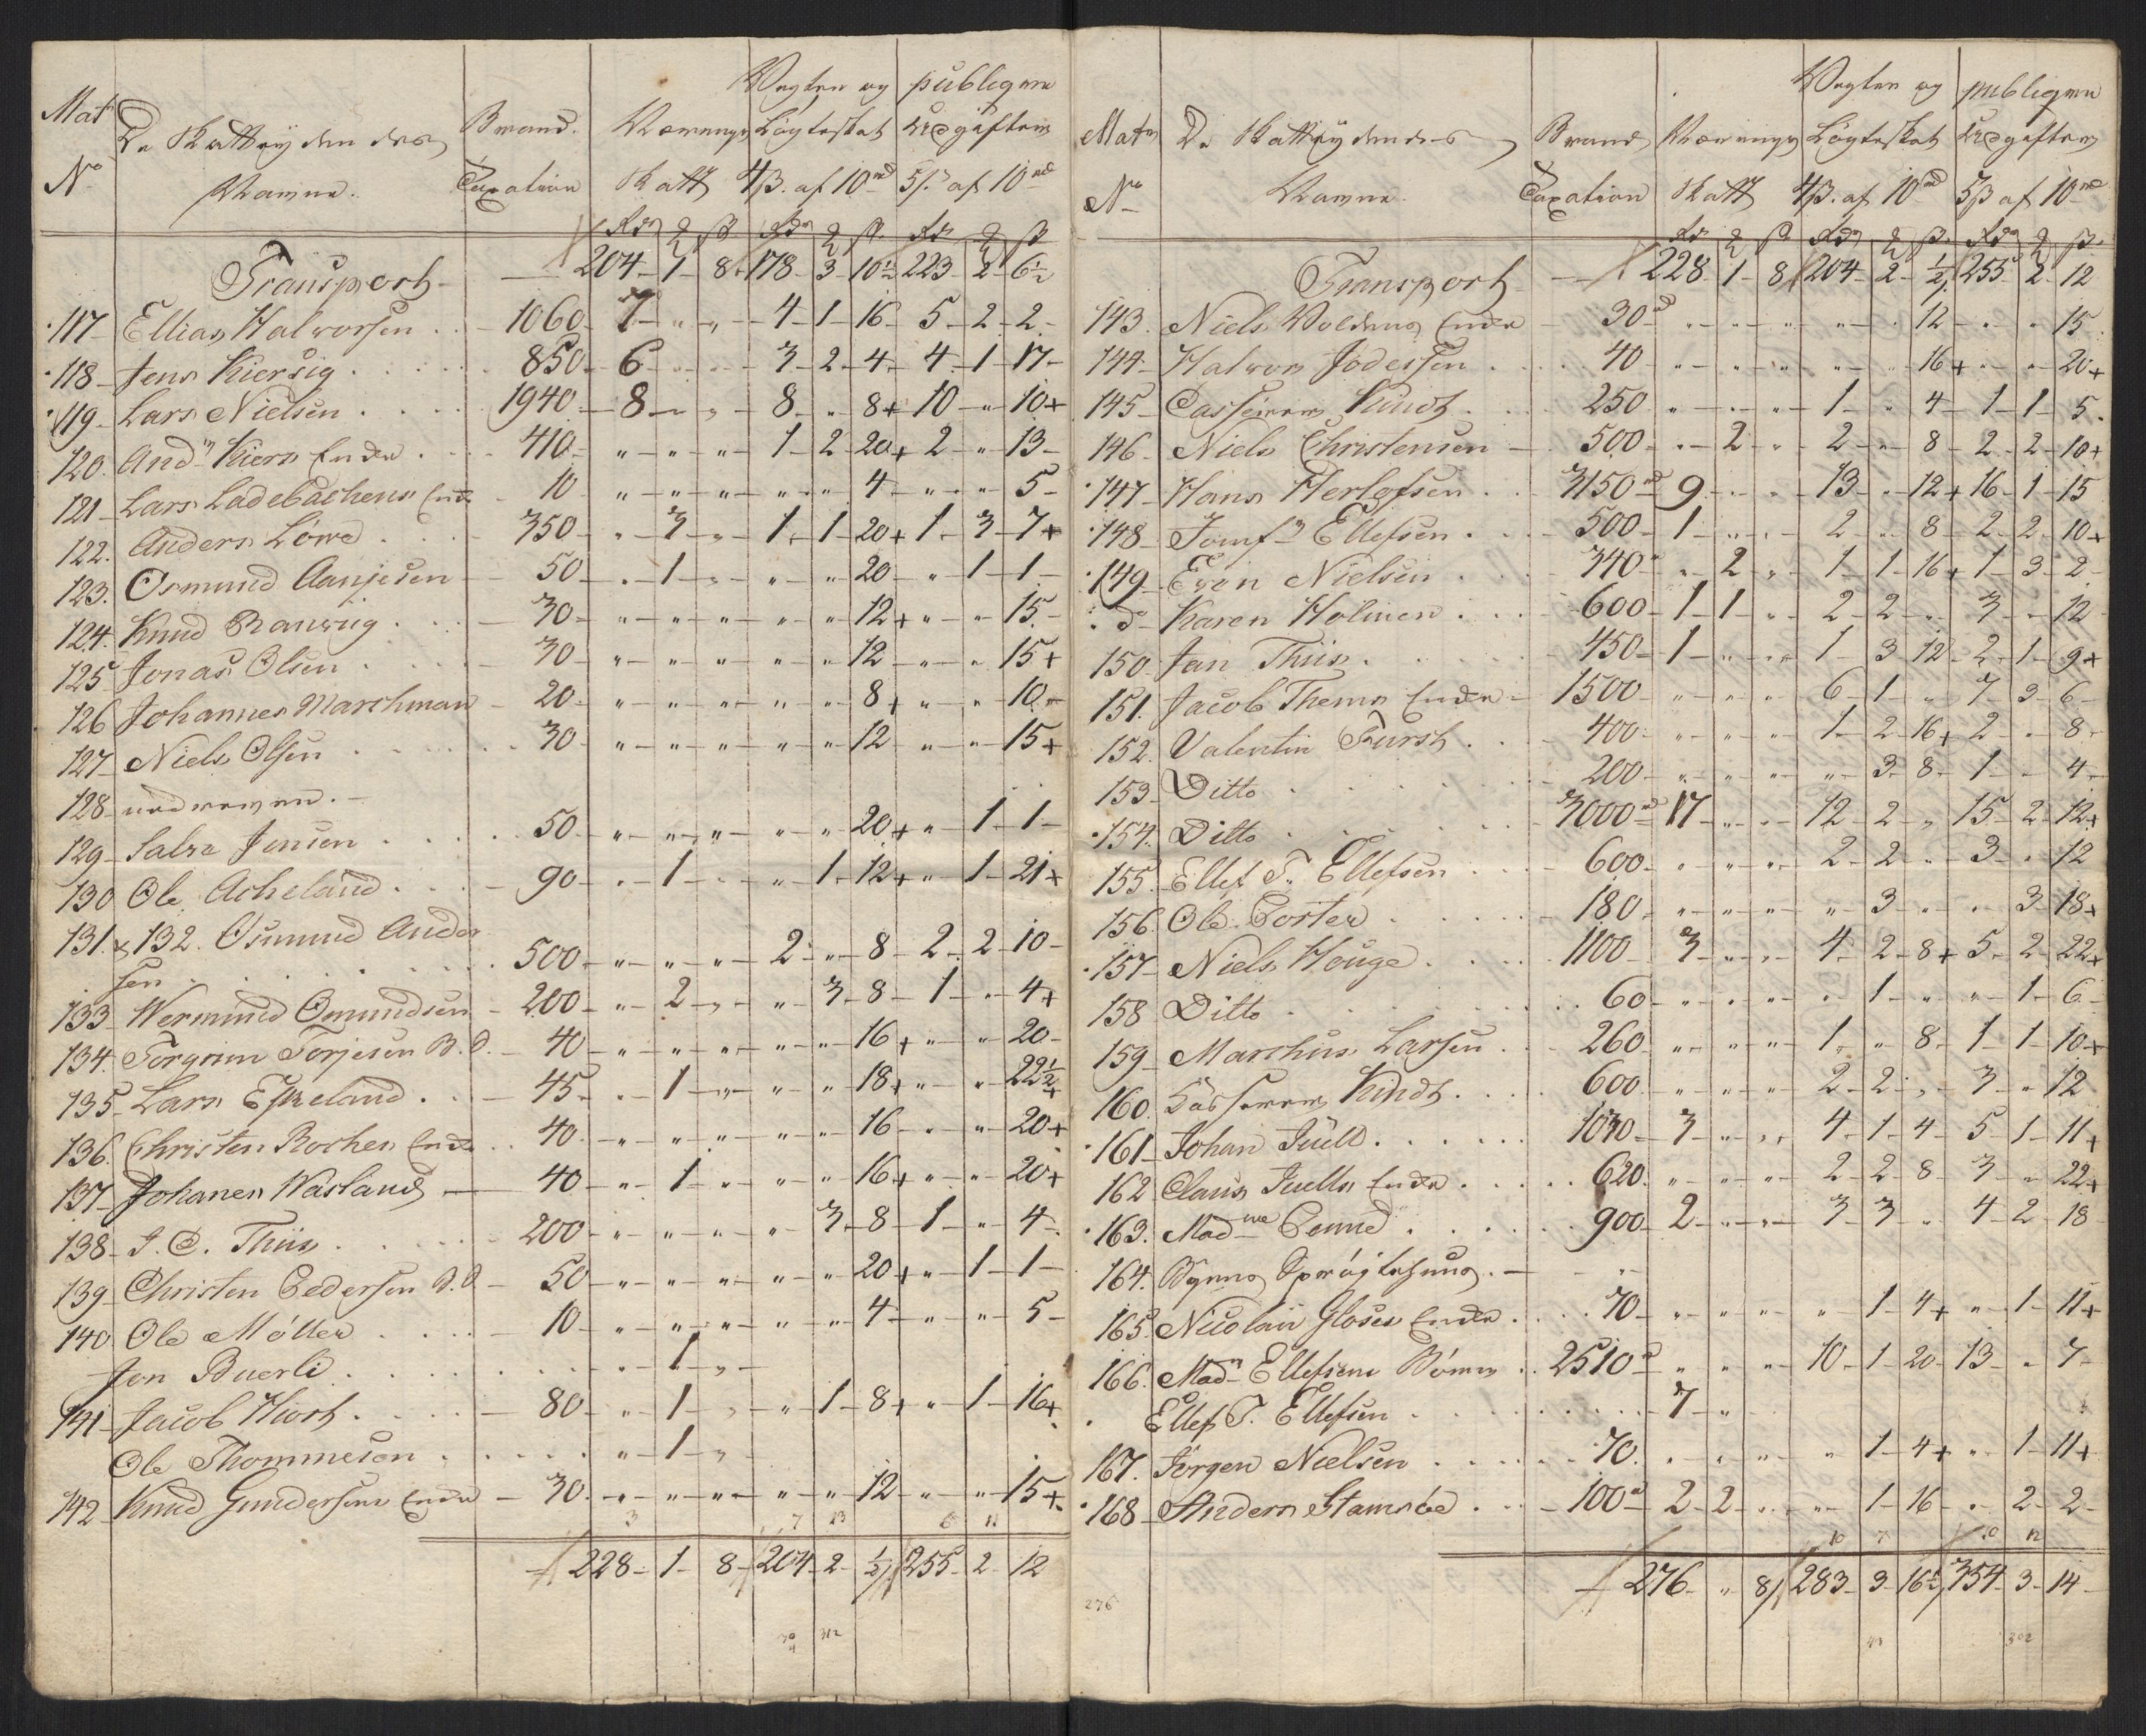 Mat No | De Skattÿdendes Navne. | Brand. Taxation | Nærings Skatt | Vegter og Løgteskat 4 ß. af 10 rd | publiqve Udgifter 5 ß. af 10 rd
Rdr ß Rdr ß. Rdr ß
Transport — 204 - 1 - 8 - 178 - 3 - 10½ 223 - 2 - 6½
117 Ellias Halvorsen . . 1060 - 7 - " - " - 4 - 1 - 16 - 5 - 2 - 2 -
118 Jens Kiersig . . . 850 - 6 - 3 - 2 - 4 - 4 - 1 - 17 -
119 Lars Nielsen . . . 1940 - 8 - " - " - 8 - " - 8+ 10 - " - 10+
120. And Kiers Enke . . 410 - " - " - " - 1 - 2 - 20+ 2 - " - 13 -
121 Lars Ladebachens Enke 10 " - " - " - " - " - 4 - " - " - 5 -
122. Anders Löwe . . . 350 - " - 3 - " - 1 - 1 - 20+ 1 - 3 - 7+
123. Osmund Aanjesen 50 - " - 1 - " - " - " - 20 - " - 1 - 1 -
124. Knud Ranvrig . . . 30 - " - " - " - " - " - 12+ " - " - 15 -
125 Jonas Olsen . . . 30 - " - " - " - " - " - 12 - " - " - 15+
126 Johannes Marchman 20 - " - " - " - " - " - 8+ " - " - 10 -
127 Niels Olsen . . . 30 - " - " - " - " - " - 12 - " - " - 15+
128 nedreven. -
129 Salve Jensen . . . 50 - " - " - " - " - " - 20+ " - 1 - 1 -
130 Ole Acheland . . . 90 - " - 1 - " - " - 1 - 12+ " - 1 - 21+
131. & 132. Osmund Ander
sen . . . 500 - " - " - " - 2 - " - 8 - 2 - 2 - 10 -
133 Wermund Omundsen - 200 - " - 2 - " - " - 3 - 8 - 1 - " - 4+
134. Torgrim Torjesen B. O. - 40 - " - " - " - " - " - 16+ " - " - 20 -
135 Lars Eskeland . . 45 - " - 1 - " - " - " - 18+ " - " - 22½+
136. Christen Rochen Enke . . 40 - " - " - " - " - " - 16 - " - " - 20+
137 Johanes Wasland — 40 - " - 1 - " - " - " - 16+ " - " - 20+
138 J. C. Thiis . . . 200 - " - " - " - " - 3 - 8 - 1 - " - 4 -
139 Christen Pedersen B. O - 50 - " - " - " - " - " - 20+ " - 1 - 1 -
140 Ole Möller . . . 10 - " - " - " - " - " - 4 - " - " - 5 -
Jen Buerli . . . " - 1 - " -
141 Jacob Hiort . . . 80 - " - 1 - " - " - 1 - 8+ " - 1 - 16+
Ole Thommesen . . . " - 1 - "
142 Knud Gundersens Enke - 30 - " - " - " - " - " - 12 - " - " - 15+
3 7 23 6 11
228 - 1 - 8 - 204 - 2 - ½ 255 - 2 - 12
Matr No - | De Skattÿdendes Navne. | Brand Taxation | Nærings Skatt | Vegter og Løgteskat 4 ß. af 10 rd | publiqve Udgifter 5 ß af 10 rd
Rdr ß Rdr ß. Rdr ß.
Transport — 228 - 1 - 8 204 - 2 - ½ 255 - 2 - 12
143. Niels Voldens Enke - 30 - " - " - " - " - " - 12 - " - " - 15
144 Halvor Jodessen . . 40 - " - " - " - " - " - 16+ " - " - 20+
145 Casserer Kundt . . 250 " - " - " - 1 - " - 4 - 1 - 1 - 5 -
146 Niels Christensen - 500 - " - 2 - " - 2 - " - 8 - 2 - 2 - 10+
147 Hans Herlofsen . . 3150 - 9 - " - " - 13 - " - 12+ 16 - 1 - 15
148 Jomfr Ellefsen . . 500 - 1 - " - " - 2 - " - 8 - 2 - 2 - 10+
149 Even Nielsen . . . 340 - " - 2 - " - 1 - 1 - 16+ 1 - 3 - 2 -
do Karen Holmen . . . 600 - 1 - 1 - " - 2 - 2 - " - 3 - " - 12
150 Jan Thiis . . . 450 - 1 - " - " - 1 - 3 - 12 - 2 - 1 - 9+
151. Jacob Thems Enke - 1500 - " - " - " - 6 - 1 - " - 7 - 3 - 6 -
152. Valentin Fursh . . 400 - " - " - " - 1 - 2 - 16+ 2 - " - 8 -
153 Ditto . . . 200 - " - " - " - " - 3 - 8 - 1 - " - 4 -
154. Ditto . . . 3000 - 17 - " - " - 12 - 2 - " - 15 - 2 - 12+
155. Ellef T. Ellefsen . . . 600 - " - " - " - 2 - 2 - " - 3 - " - 12
156 Ole Porter . . . 180 - " - " - " - " - 3 - " - " - 3 - 18+
157 Niels Houge . . . 1100 - 3 - " - " - 4 - 2 - 8+ 5 - 2 - 22+
158 Ditto . . . 60 - " - " - " - " - 1 - " - " - 1 - 6 -
159 Marchus Larsen . . 260 " - " - " - 1 - " - 8 - 1 - 1 - 10+
160. Casserer Kundt . . . 600 " - " - " - 2 - 2 - " - 3 - " - 12
161 Johan Juell . . . 1030 - 3 - " - " - 4 - 1 - 4 - 5 - 1 - 11+
162 Claus Juells Enke . . . 620 - " - " - " - 2 - 2 - 8 - 3 - " - 22+
163. Madme Bennd . . . 900 - 2 - " - " - 3 - 3 - " - 4 - 2 - 18
164. Byens Sprøjtehuus. -
165. Nicolai Gloses Enke . . . 70 - " - " - " - " - 1 - 4+ " - 1 - 11+
166. Mad Ellefsens Børn . . 2510 - " - " - " - 10 - 1 - 20 - 13 - " - 7 -
Ellef T. Ellefsen . . . 7 - "
167. Jörgen Nielsen . . . 70. " - " - " - " - 1 - 4+ " - 1 - 11+
168 Anders Stamsöe . . - 100 - 2 - 2 - " - " - 1 - 16 - " - 2 - 2 -
10 7 10 12
276 - " - 8 283 - 3 - 16½ 354 - 3 - 14 -
276